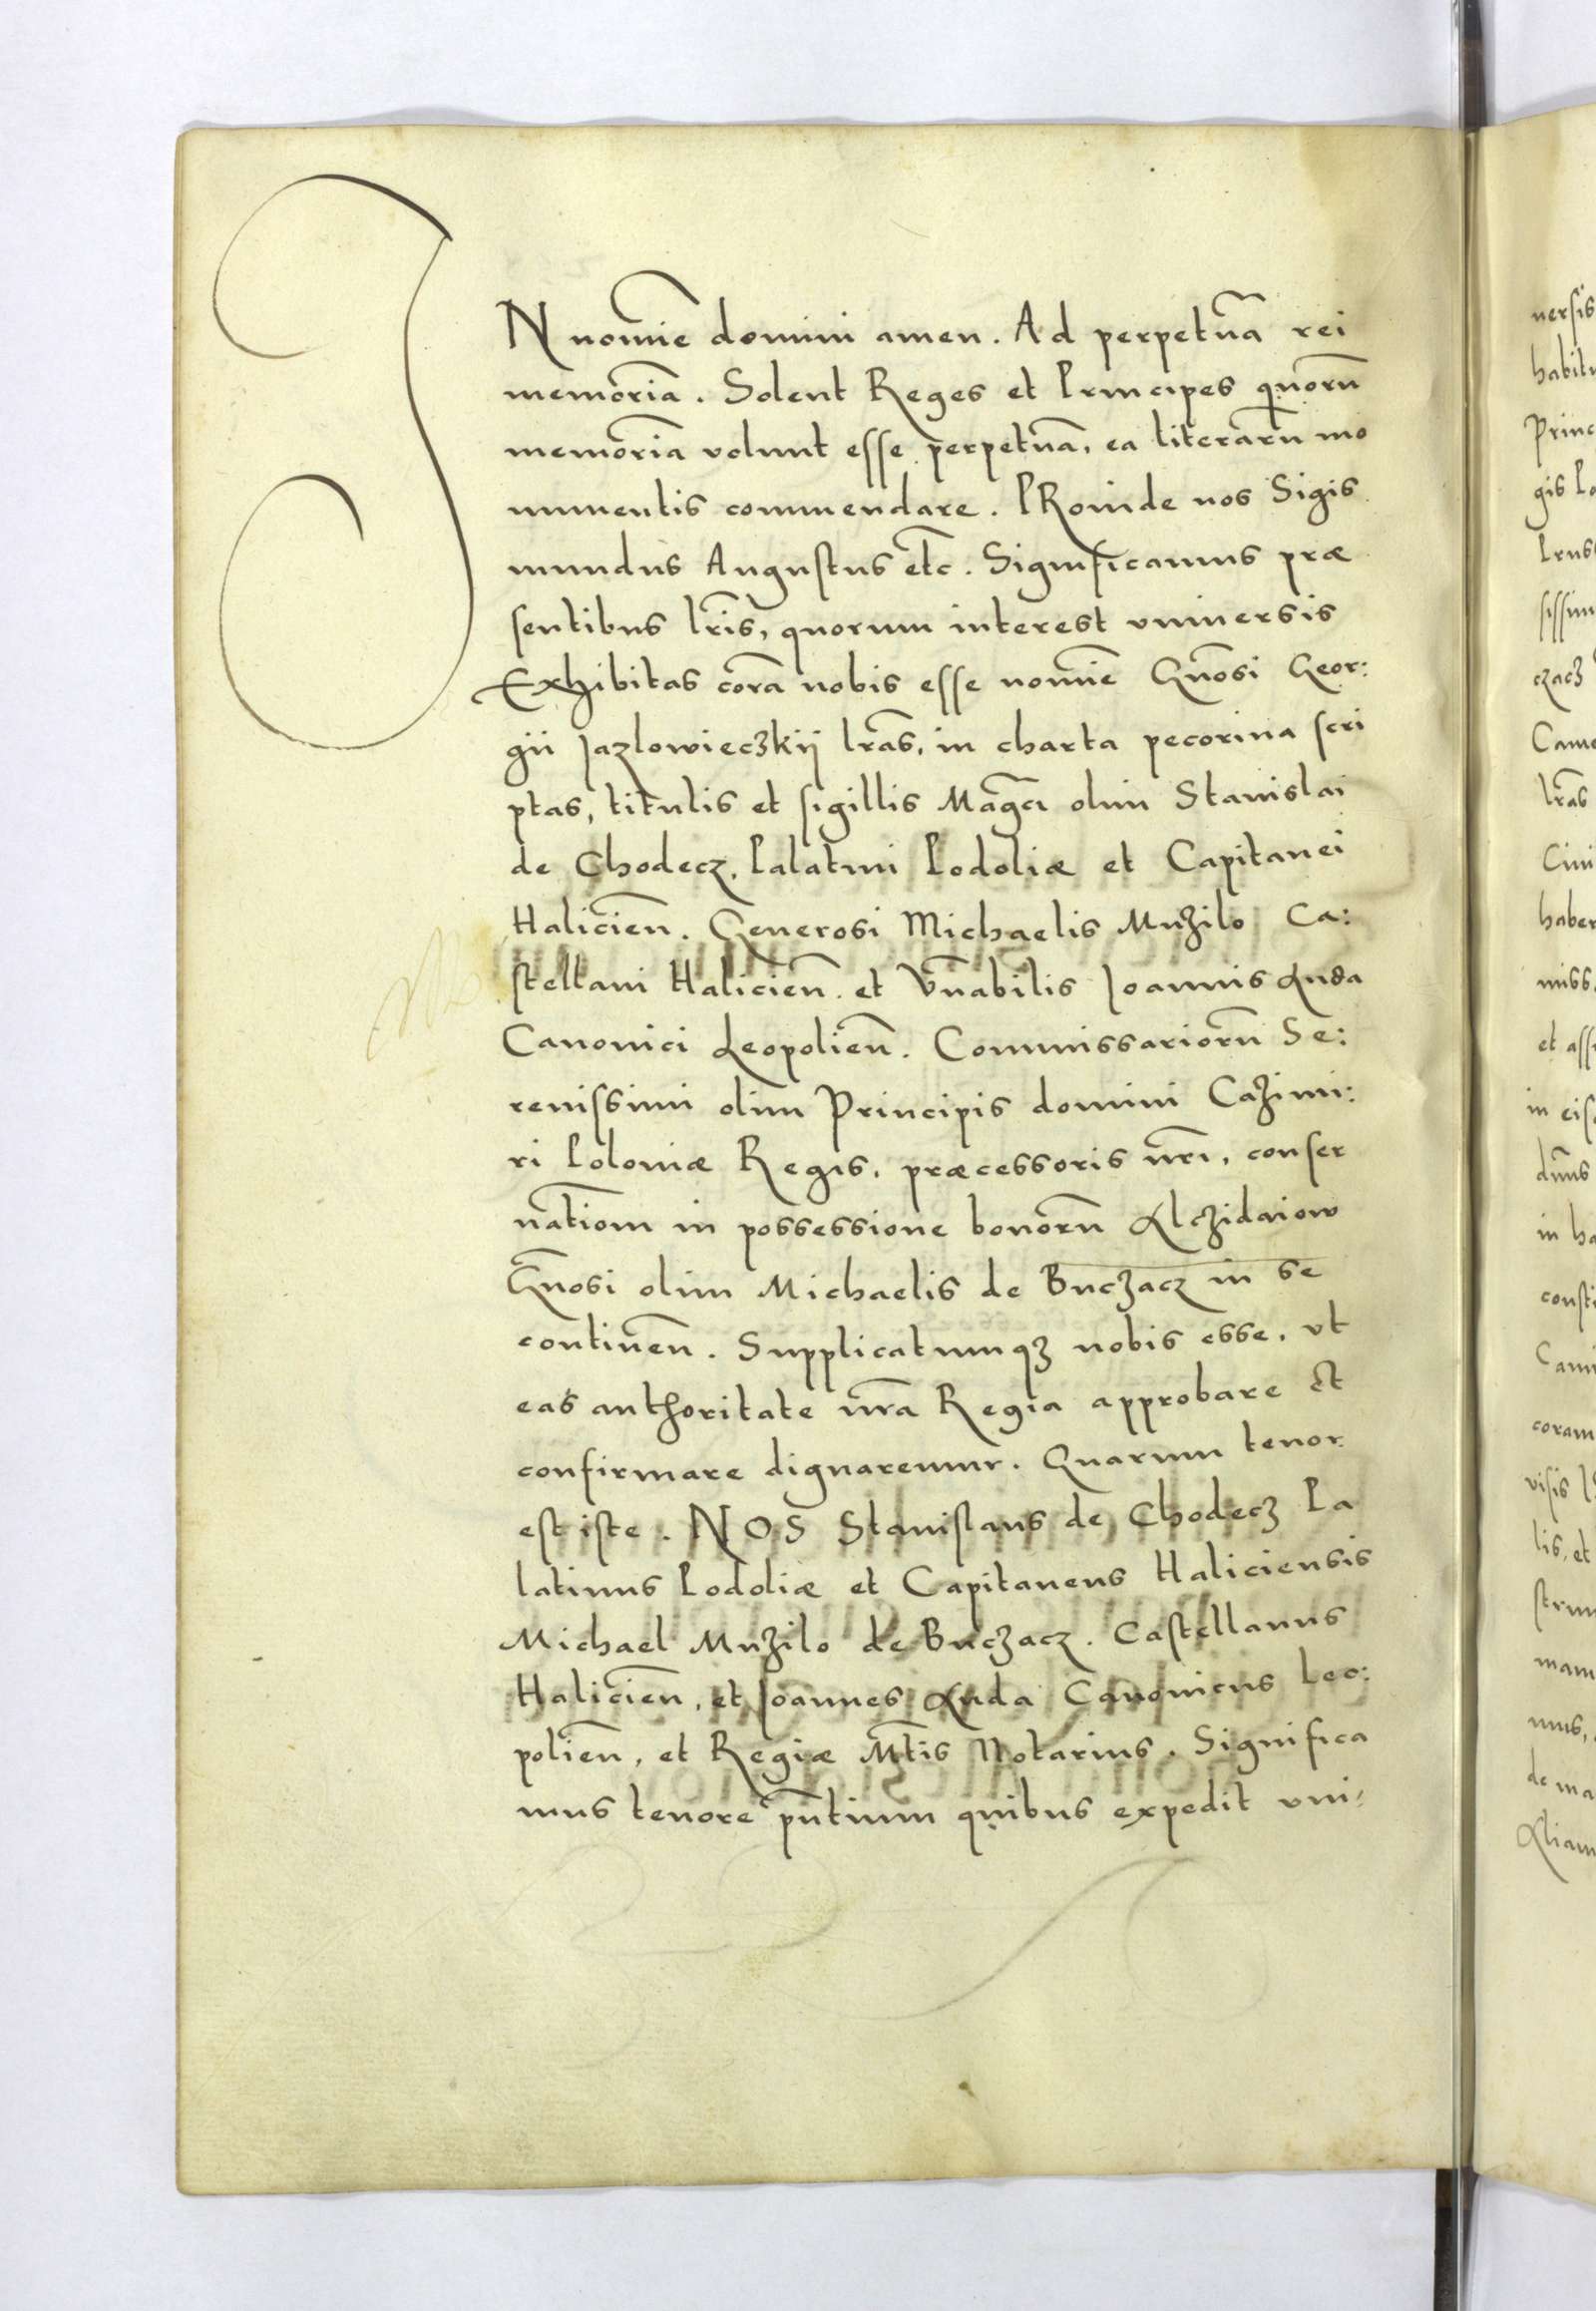 IN nomīe domini amen. Ad perpetuā rei
memoriā. Solent Reges et Principes quorū
memoriā volunt esse perpetuā, ea literarū mo
numentis commendare. PRoinde nos Sigis
mundus Augustus etc̄. Significamus præ
sentibus lr̄is, quorum interest vniuersis
Exhibitas corā nobis esse nomīe Gn̄osi Geor:
gii Jazlowieczkij lr̄as, in charta pecorina scri
ptas, titulis et sigillis Mag̅ci olim Stanislai
de Chodecz, Palatini Podoliæ et Capitanei
Halicień. Generosi Michaelis Mużilo Ca:
stellani Halicień. et Vn̄abilis Joannis Luda
Canonici Leopolień. Commissariorū Se:
renissimi olim Principis domini Cażimi:
ri Poloniæ Regis, præcessoris nr̄i, conser
uātiom in possessione bonorū Alczidaiow
Gn̄osi olim Michaelis de Buczacz in se
continēn. Supplicatumqȝ nobis esse, vt
eas authoritate nr̄a Regia approbare et
confirmare dignaremur. Quarum tenor
est iste. NOS Stanislaus de Chodecz Pa
latinus Podoliæ et Capitaneus Haliciensis
Michael Mużilo de Buczacz. Castellanus
Halicień, et Joannes Luda Canonicus Leo:
polień, et Regiæ Mt̄is Notarius. Significa
mus tenore pn̄tium quibus expedit vni:
uersis
habitu
Princ
gis Po
Prus
sissim
czacz
Came
lr̄as
Ciui
haber
miss.
et ass
in eis
dn̄us
in ha
consti
Cami
coram
visis
lis, et
strum
manu
mus,
de ma
Aliam